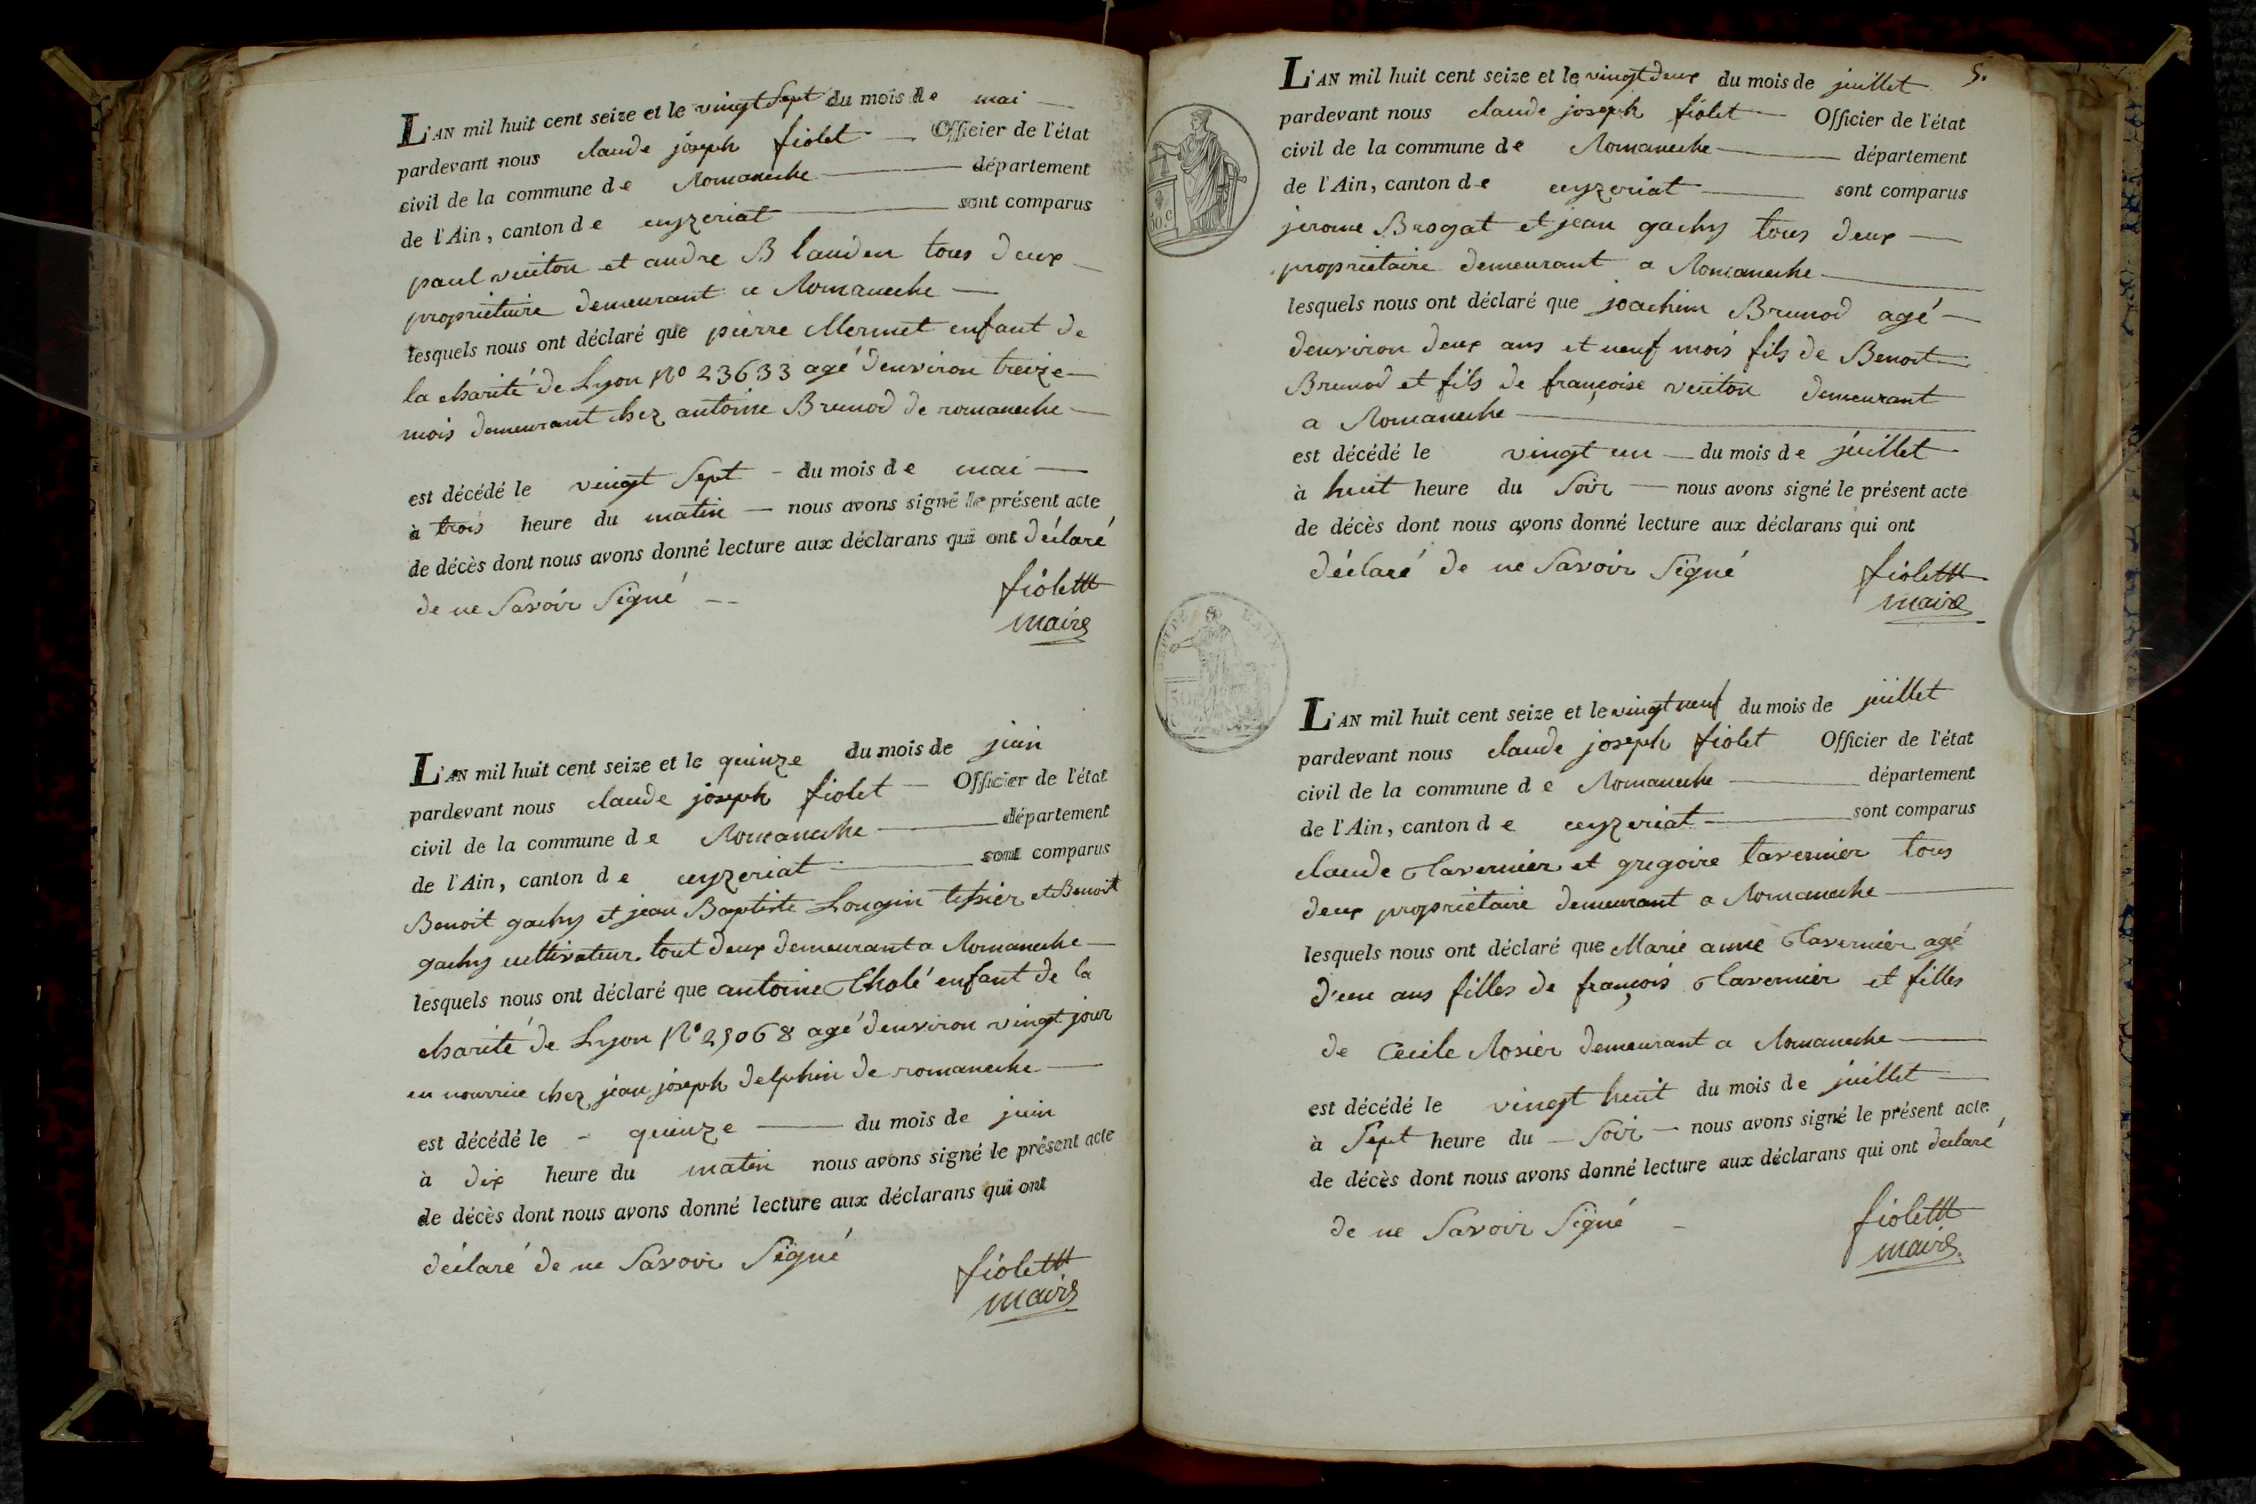 L'AN mil huit cent seize et le vingt Sept du mois de mai
pardevant nous claude joseph fiolet Officier de l'état
civil de la commune de Romaneche département
de l'Ain, canton de ceyzeriat sont comparus
paul vuiton et andre Blanden tous deux
proprietaire demeurant a Romaneche
lesquels nous ont déclaré que pierre Mermet enfant de
la charité de Lyon No 23633 agé denviron treize
mois demeurant chez antoine Brunod de romaneche
est décédé le vingt Sept du mois de mai
à trois heure du matin nous avons signé le présent acte
de décès dont nous avons donné lecture aux déclarans qui ont déclaré
de ne Savoir Signé
fiolet
maire
L'AN mil huit cent seize et le quinze du mois de juin
pardevant nous claude joseph fiolet Officier de l'état
civil de la commune de Romaneche département
de l'Ain, canton de ceyzeriat sont comparus
Benoit gachy et jean Baptiste Longin tissier et Benoit
gachy cultivateur tout deux demeurant a Romaneche
lesquels nous ont déclaré que antoine Tholé enfant de la
charité de Lyon No 25068 agé denviron vingt jour
en nourrice chez jean joseph delphin de romaneche
est décédé le quinze du mois de juin
à dix heure du matin nous avons signé le présent acte
de décès dont nous avons donné lecture aux déclarans qui ont
déclaré de ne Savoir Signé
fiolet
maire
5.
L'AN mil huit cent seize et le vingt deux du mois de juillet
pardevant nous claude joseph fiolet Officier de l'état
civil de la commune de Romaneche département
de l'Ain, canton de ceyzeriat sont comparus
jerome Brogat et jean gachy tous deux
proprietaire demeurant a Romaneche
lesquels nous ont déclaré que joachim Brunod agé
denviron deux ans et neuf mois fils de Benoit
Brunod et fils de françoise vuiton demeurant
a Romaneche
est décédé le vingt un du mois de juillet
à huit heure du Soir nous avons signé le présent acte
de décès dont nous avons donné lecture aux déclarans qui ont
déclaré de ne Savoir Signé
fiolet
maire
L'AN mil huit cent seize et le vingt neuf du mois de juillet
pardevant nous claude joseph fiolet Officier de l'état
civil de la commune de Romaneche département
de l'Ain, canton de ceyzeriat sont comparus
claude Tavernier et gregoire tavernier tous
deux proprietaire demeurant a Romaneche
lesquels nous ont déclaré que Marie anne Tavernier agé
d'eun ans filles de françois Tavernier et filles
de Cecile Rosier demeurant a Romaneche
est décédé le vingt huit du mois de juillet
à Sept heure du Soir nous avons signé le présent acte
de décès dont nous avons donné lecture aux déclarans qui ont déclaré
de ne Savoir Signé
fiolet
maire